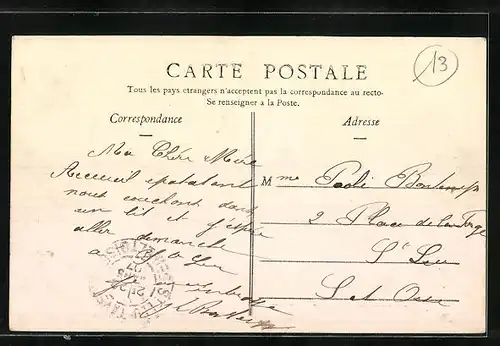 13
CARTE POSTALE
Tous les pays etrangers n'acceptent pas la correspondance au recto-
Se renseigner a la Poste.
Correspondance
Adresse
Ma Chère Mère
Accueil epatatant
nous couchons dans
un lit et j'espère
aller dimanche
Mme Bontemps
2 Place de la Forge
St Leu
S et Oise